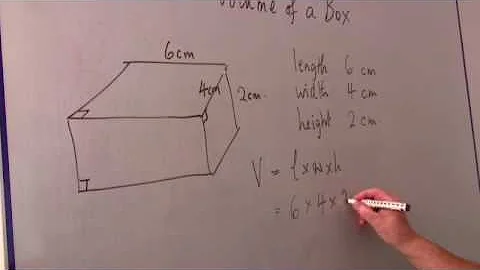 Volume of a Box
6cm
4cm
2cm.
length 6 cm
width 4 cm
height 2 cm
V = l x w x h
= 6 x 4 x